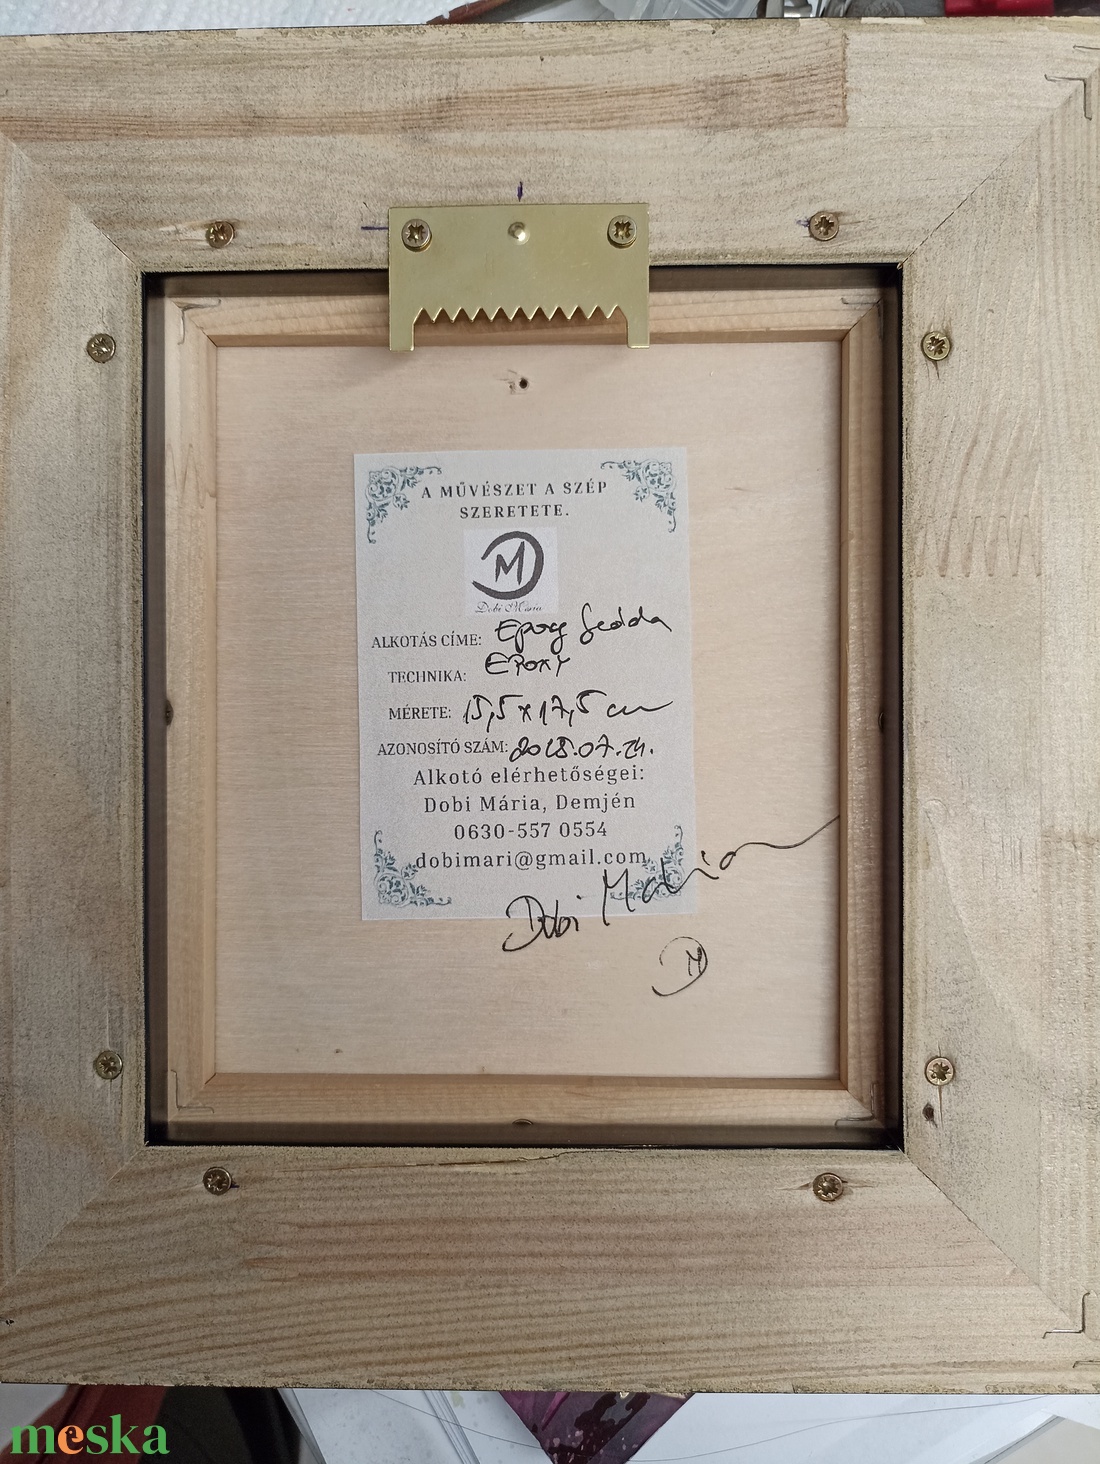 A MŰVÉSZET A SZÉP
SZERETETE.
M
Dobi Mária
ALKOTÁS CÍME: Epoxy
TECHNIKA: EPOXY
MÉRETE: 15,5 x 17,5 cm
AZONOSÍTÓ SZÁM:
Alkotó elérhetőségei:
Dobi Mária, Demjén
0630-557 0554
dobimari@gmail.com
Dobi Mária
M
meska